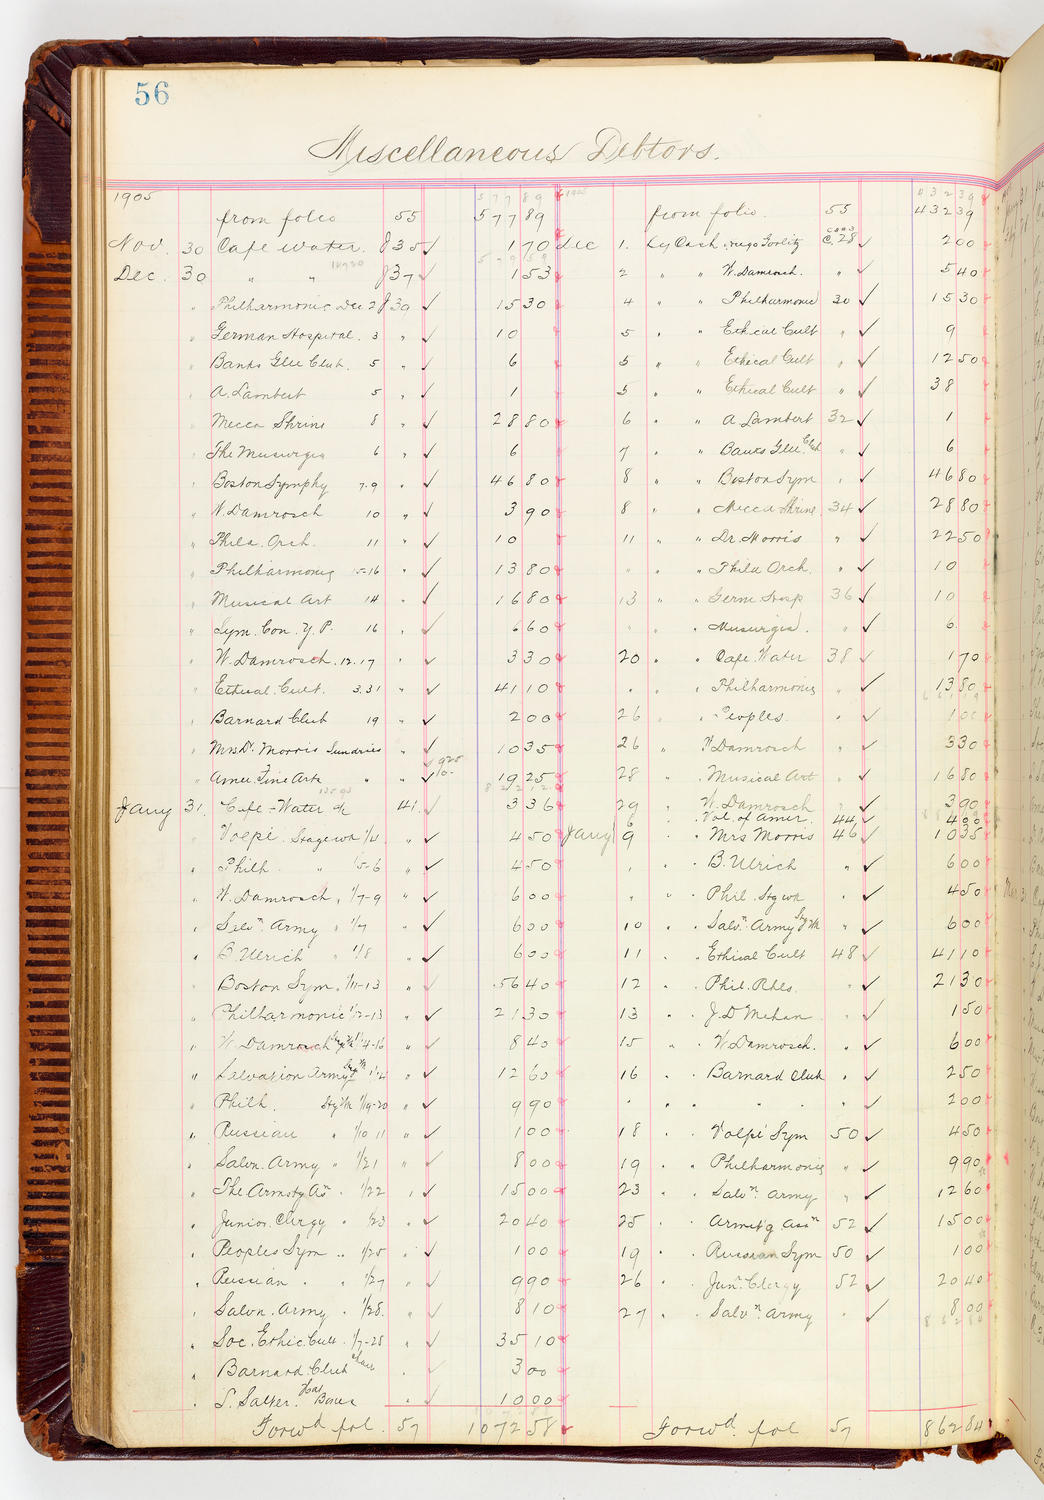 56
Miscellaneous Debtors.
1905
from folio 55 577 89
Nov. 30 Cafe Water. 835 ✓ 1 70
Dec. 30 " " 837 ✓ 1 53
" Philharmonic Dec 2 839 ✓ 15 30
" German Hospital. 3 " ✓ 10
" Banks Glee Club. 5 " ✓ 6
" A. Lambert 5 " ✓ 1
" Mecca Shrine 8 " ✓ 28 80
" The Musurgia 6 " ✓ 6
" Boston Symphy 7-9 " ✓ 46 80
" W. Damrosch 10 " ✓ 3 90
" Phila. Orch. 11 " ✓ 10
" Philharmonic 15-16 " ✓ 13 80
" Musical Art 14 " ✓ 16 80
" Sym. Con. Y. P. 16 " ✓ 6 60
" W. Damrosch. 12.17 " ✓ 3 30
" Ethical. Cult. 3.31 " ✓ 41 10
" Barnard Club 19 " ✓ 2 00
" Mrs Dr. Morris Sundries " ✓ 10 35
" Amer. Fine Arts " " ✓ 19 25
Jany 31. Cafe - Water 41. ✓ 3 36
Volpe. Stagewk 1/4 " ✓ 4 50
" Philh. " 1/5-6 " ✓ 4 50
" W. Damrosch, " 1/7-9 " ✓ 6 00
" Salvn. Army " 1/7 " ✓ 6 00
" B. Ulrich " 1/8 " ✓ 6 00
" Boston Sym. " 1/11-13 " ✓ 56 40
" Philharmonic 1/12-13 " ✓ 21 30
" W. Damrosch Stg Wk 1/14-16 " ✓ 8 40
" Salvation Army Stg Wk 1/14 " ✓ 12 60
" Philh. Stg Wk 1/19-20 " ✓ 9 90
" Russian " 1/10 11 " ✓ 1 00
" Salvn. Army " 1/21 " ✓ 8 00
" The Armstg Asn. " 1/22 " ✓ 15 00
" Junior Clergy " 1/23 " ✓ 20 40
" Peoples Sym " 1/25 " ✓ 1 00
" Russian " " 1/27 " ✓ 9 90
" Salvn. Army " 1/28. " ✓ 8 10
" Soc. Ethic. Cult. 1/7-28 " ✓ 35 10
" Barnard. Club " ✓ 3 00
" S. Salter. " ✓ 10 00
Forwd fol. 57 1072 58
from folio. 55 432 39
Dec 1. by Cash Hugo Gorlitz C. 28 ✓ 2 00
2 " " W. Damrosch. " ✓ 5 40
4 " " Philharmonic 30 ✓ 15 30
5 " " Ethical Cult " ✓ 9
5 " " Ethical Cult " ✓ 12 50
5 " " Ethical Cult " ✓ 38
6 " " A. Lambert 32 ✓ 1
7 " " Banks Glee Club " ✓ 6
8 " " Boston Sym " ✓ 46 80
8 " " Mecca Shrine 34 ✓ 28 80
11 " " Dr. Morris " ✓ 22 50
" " " Phila Orch. " ✓ 10
13 " " Germ Hosp 36 ✓ 10
" " " Musurgia. " ✓ 6
20 " " Cafe. Water 38 ✓ 1 70
" " " Philharmonic " ✓ 13 80
26 " " Peoples. " ✓ 1 00
26 " " W Damrosch " ✓ 3 30
28 " Musical Art " ✓ 16 80
29 " W. Damrosch " ✓ 3 90
6 " Vol. of Amer. 44 ✓ 4 00
Jany 9 " Mrs Morris 46 ✓ 10 35
" " B. Ulrich " ✓ 6 00
" " Phil. Stg wk " ✓ 4 50
10 " " Salvn. Army Stg Wk " ✓ 6 00
11 " " Ethical Cult 48 ✓ 41 10
12 " " Phil. Rhls. " ✓ 21 30
13 " " J. D Mehan " ✓ 1 50
15 " " W Damrosch. " ✓ 6 00
16 " " Barnard Club " ✓ 2 50
" " " " " " ✓ 2 00
18 " " Volpe Sym 50 ✓ 4 50
19 " " Philharmonic " ✓ 9 90
23 " " Salvn. Army " ✓ 12 60
25 " " Armst'g Assn 52 ✓ 15 00
19 " " Russian Sym 50 ✓ 1 00
26 " " Junr. Clergy 52 ✓ 20 40
27 " " Salvn. Army " ✓ 8 00
Forwd. fol 57 862 84